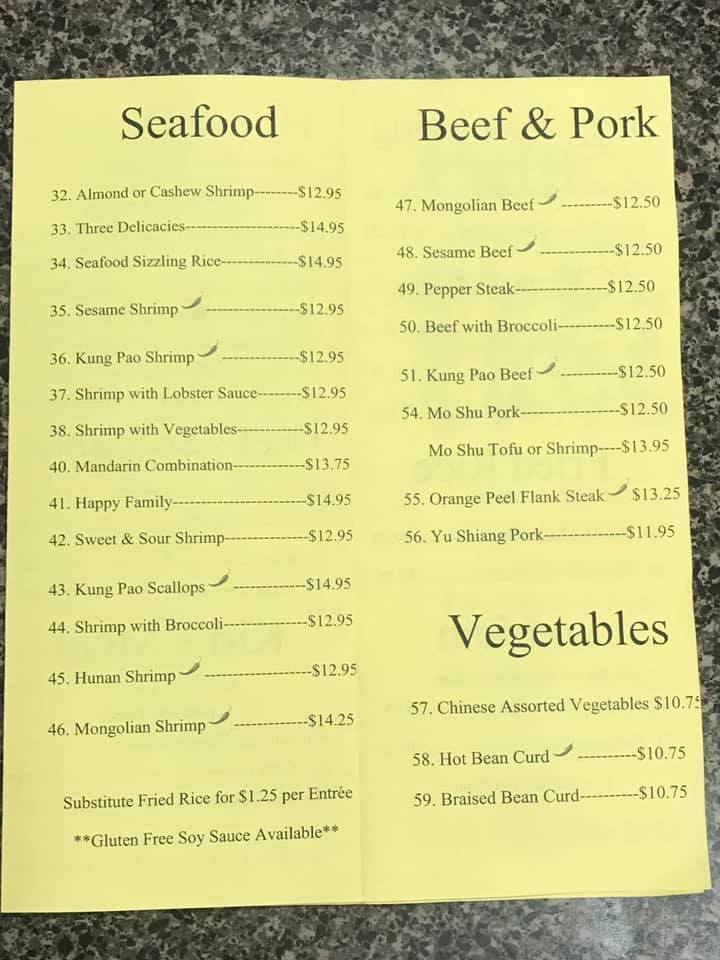 Seafood
32. Almond or Cashew Shrimp--------$12.95
33. Three Delicacies---------------------$14.95
34. Seafood Sizzling Rice--------------$14.95
35. Sesame Shrimp -----------------$12.95
36. Kung Pao Shrimp --------------$12.95
37. Shrimp with Lobster Sauce--------$12.95
38. Shrimp with Vegetables------------$12.95
40. Mandarin Combination-------------$13.75
41. Happy Family------------------------$14.95
42. Sweet & Sour Shrimp---------------$12.95
43. Kung Pao Scallops -------------$14.95
44. Shrimp with Broccoli---------------$12.95
45. Hunan Shrimp -------------------$12.95
46. Mongolian Shrimp -------------$14.25
Substitute Fried Rice for $1.25 per Entrée
**Gluten Free Soy Sauce Available**
Beef & Pork
47. Mongolian Beef ---------$12.50
48. Sesame Beef -------------$12.50
49. Pepper Steak----------------$12.50
50. Beef with Broccoli----------$12.50
51. Kung Pao Beef ----------$12.50
54. Mo Shu Pork-----------------$12.50
Mo Shu Tofu or Shrimp----$13.95
55. Orange Peel Flank Steak $13.25
56. Yu Shiang Pork--------------$11.95
Vegetables
57. Chinese Assorted Vegetables $10.75
58. Hot Bean Curd ----------$10.75
59. Braised Bean Curd----------$10.75